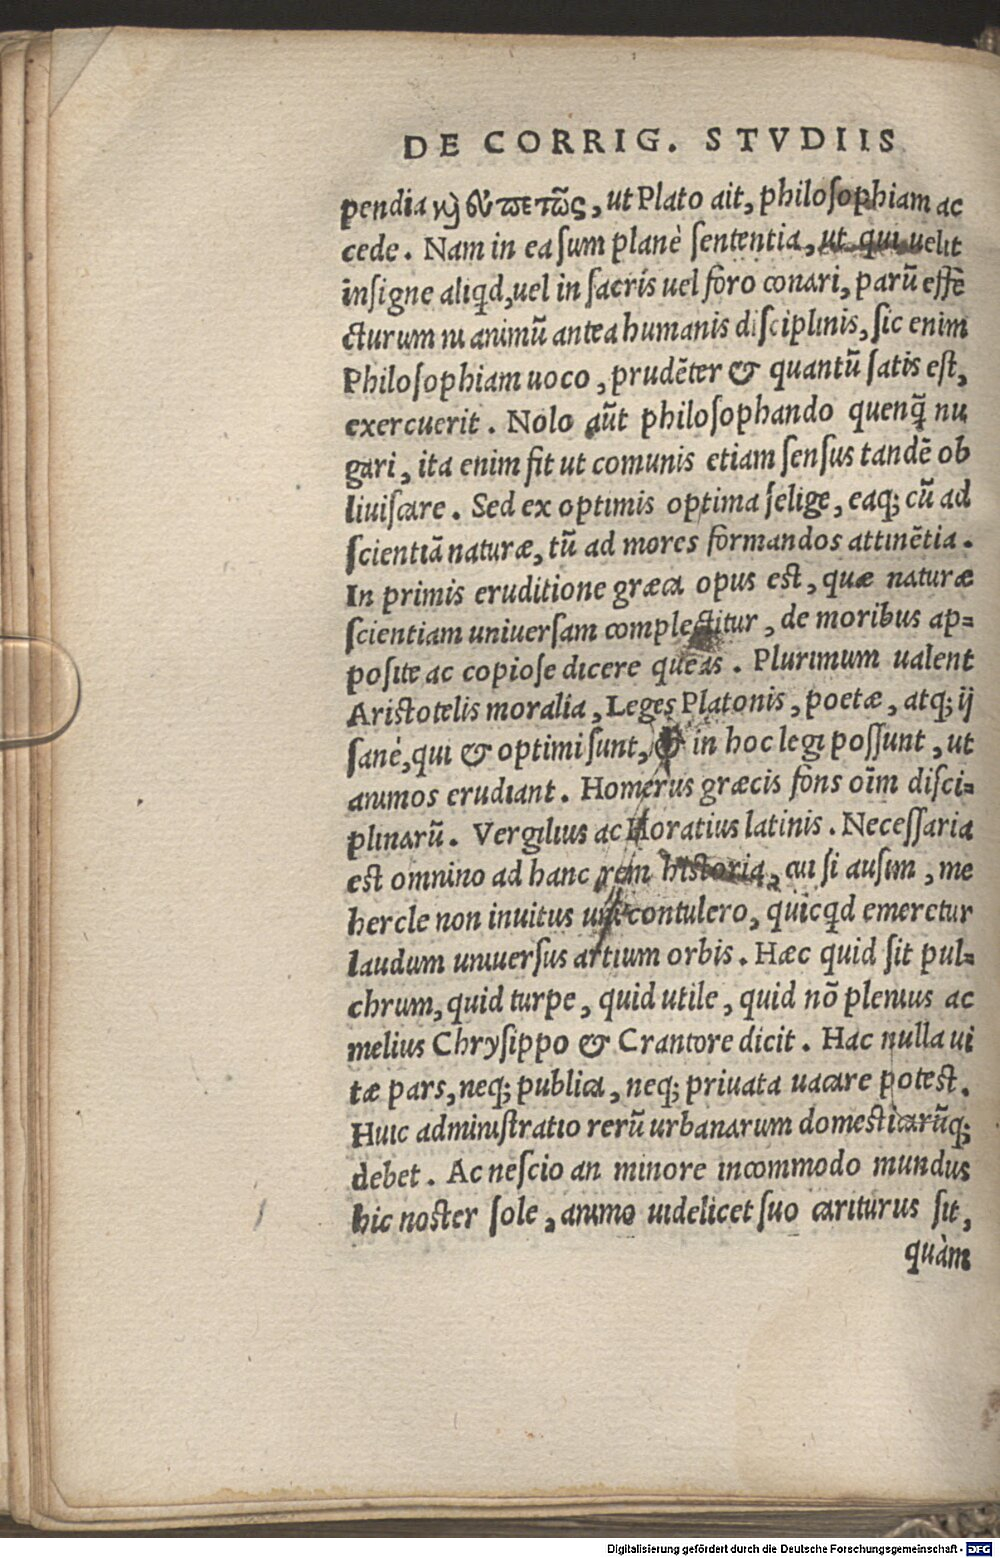 DE CORRIG. STVDIIS
pendia κ̀ ευπετῶς, ut Plato ait, philoſophiam ac
cede. Nam in ea ſum planè ſententia, ut qui uelit
inſigne aliqd, uel in ſacris uel foro conari, parũ effe
cturum ni animũ antea humanis diſciplinis, ſic enim
Philoſophiam uoco, prudẽter & quantũ ſatis eſt,
exercuerit. Nolo aũt philoſophando quenq̃ nu
gari, ita enim fit ut comunis etiam ſenſus tandẽ ob
liuiſcare. Sed ex optimis optima ſelige, eaq; cũ ad
ſcientiã naturæ, tũ ad mores formandos attinẽtia.
In primis eruditione græca opus eſt, quæ naturæ
ſcientiam uniuerſam complectitur, de moribus ap=
poſite ac copioſe dicere queas. Plurimum ualent
Ariſtotelis moralia, Leges Platonis, poetæ, atq; ij
ſanè, qui & optimi ſunt, & in hoc legi poſſunt, ut
animos erudiant. Homerus græcis fons oĩm diſci=
plinarũ. Vergilius ac Horatius latinis. Neceſſaria
eſt omnino ad hanc rem hiſtoria, cui ſi auſim, me
hercle non inuitus uni contulero, quicqd emeretur
laudum uniuerſus artium orbis. Hæc quid ſit pul=
chrum, quid turpe, quid utile, quid nõ plenius ac
melius Chryſippo & Crantore dicit. Hac nulla ui
tæ pars, neq; publica, neq; priuata uacare poteſt.
Huic adminiſtratio rerũ urbanarum domeſticarũq;
debet. Ac neſcio an minore incommodo mundus
hic noſter ſole, animo uidelicet ſuo cariturus ſit,
quàm
Digitalisierung gefördert durch die Deutsche Forschungsgemeinschaft - DFG